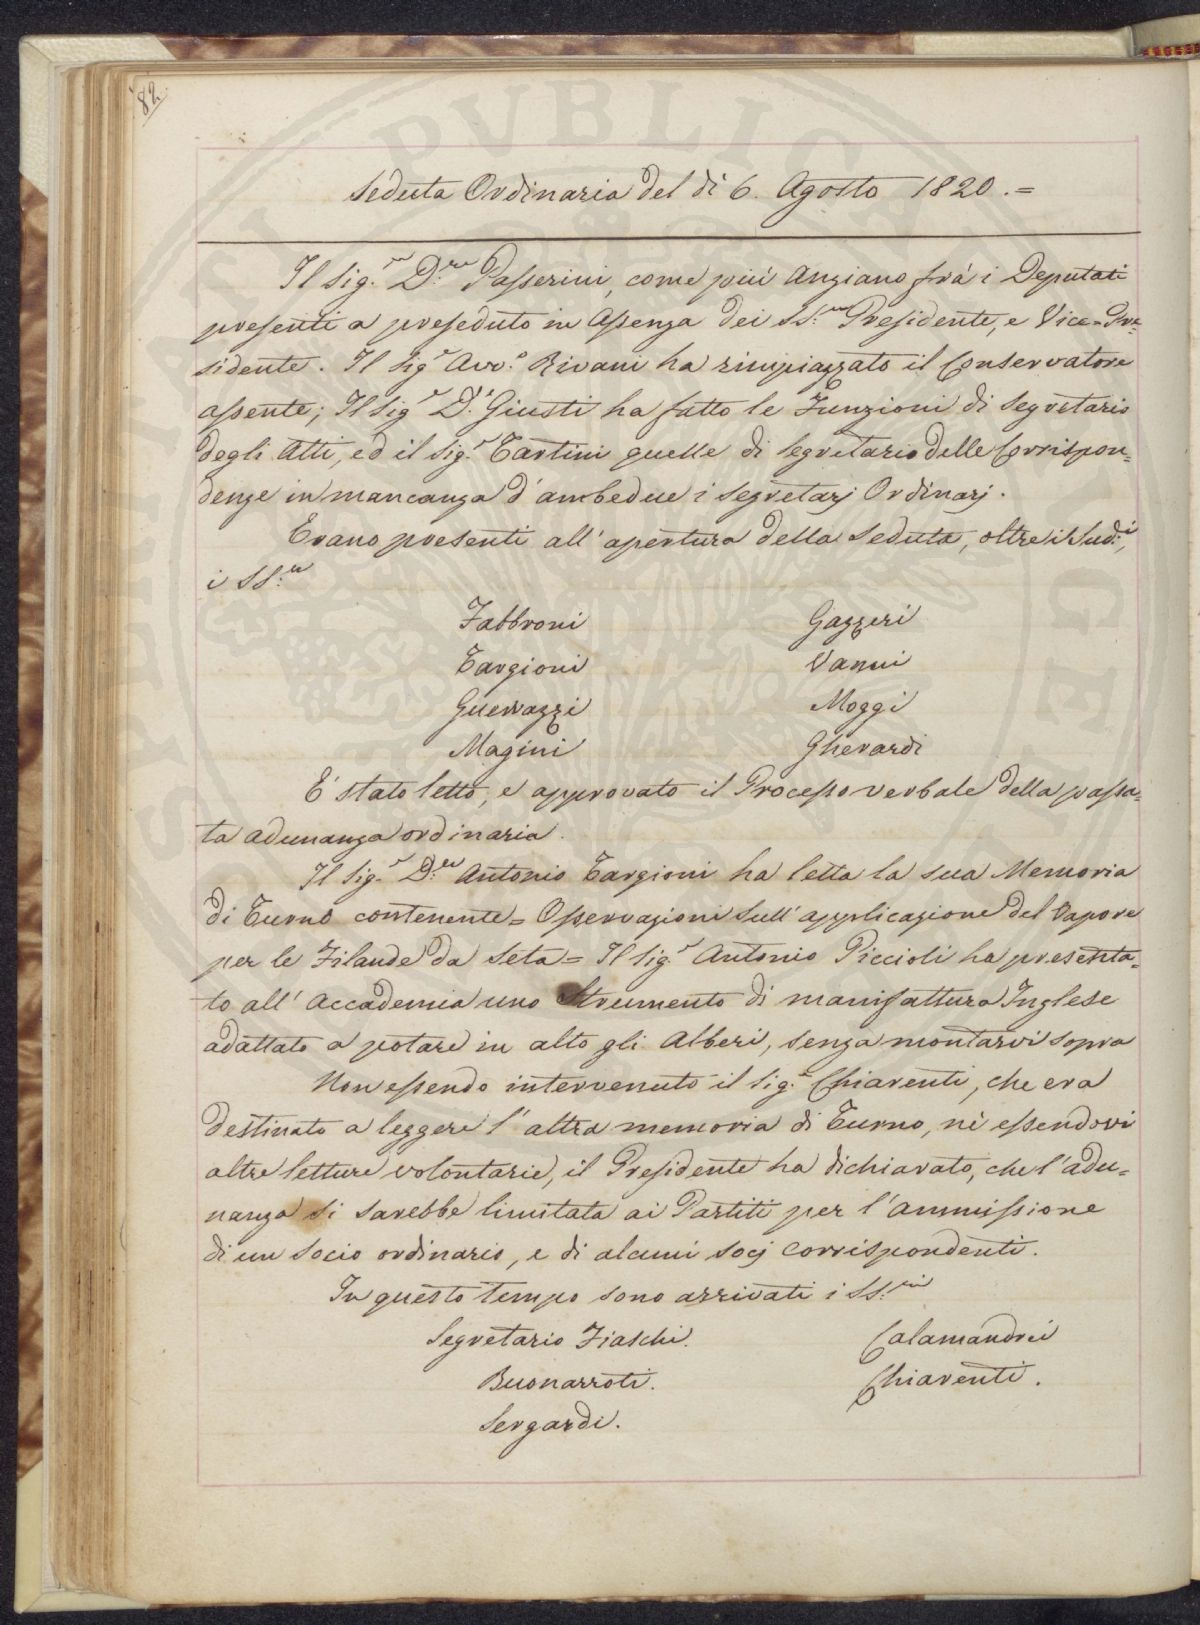 82.
PVBLICA
Seduta Ordinaria del di 6. Agosto 1820.=
Il Sig.re D.re Passerini, come più Anziano frà i Deputati
presenti a preseduto in Assenza dei SS.ri Presidente, e Vice=Pre=
sidente. Il Sig.r Avv.o Rivani ha rimpiazzato il Conservatore
assente; Il Sig.r D.r Giusti ha fatto le Funzioni di Segretario
degli Atti, ed il Sig.r Tartini quelle di Segretario delle Corrispon=
denze in mancanza d'ambedue i Segretarj Ordinarj.
Erano presenti all'apertura della Seduta, oltre i Sud.i,
i SS.ri
Fabbroni Gazzeri
Targioni Vanni
Guerrazzi Moggi
Magini Gherardi
E' stato letto, e approvato il Processo verbale della passa=
ta adunanza ordinaria.
Il Sig.r D.re Antonio Targioni ha letta la sua Memoria
di Turno contenente = Osservazioni sull'applicazione del Vapore
per le Filande da Seta = Il Sig.r Antonio Piccioli ha presenta=
to all'Accademia uno Strumento di manifattura Inglese
adattato a potare in alto gli Alberi, senza montarvi sopra
Non essendo intervenuto il Sig.r Chiarenti, che era
destinato a leggere l'altra memoria di Turno, nè essendovi
altre letture volontarie, il Presidente ha dichiarato, che l'adu=
nanza si sarebbe limitata ai Partiti per l'ammissione
di un Socio ordinario, e di alcuni Socj Corrispondenti.
In questo tempo sono arrivati i SS.ri
Segretario Fiaschi. Calamandrei
Buonarroti. Chiarenti.
Sergardi.